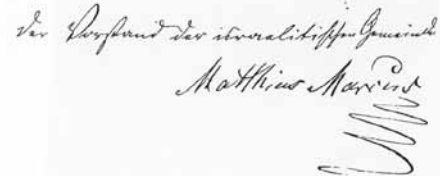 Der Vorstand der israelitischen Gemeinde
Matthias Marcus